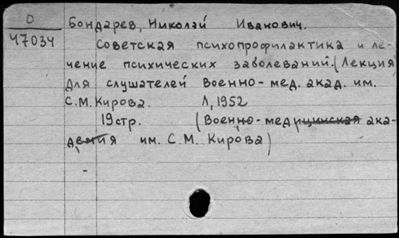 О
47034
Бондарев, Николай Иванович.
Советская психопрофилактика и ле-
чение психических заболеваний. (Лекция
для слушателей Военно-мед. акад. им.
С.М.Кирова. Л, 1952
19стр. (Военно-медицинская ака-
демия им. С.М. Кирова)